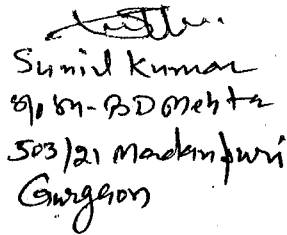 Sunil Kumar
S/o Sh- BD Mehta
503/21 Madanpuri
Gurgaon